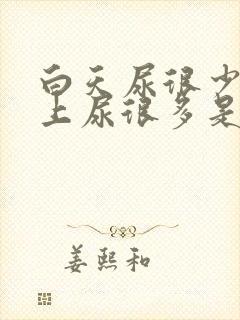 白天尿很少
上尿很多是
姜熙和